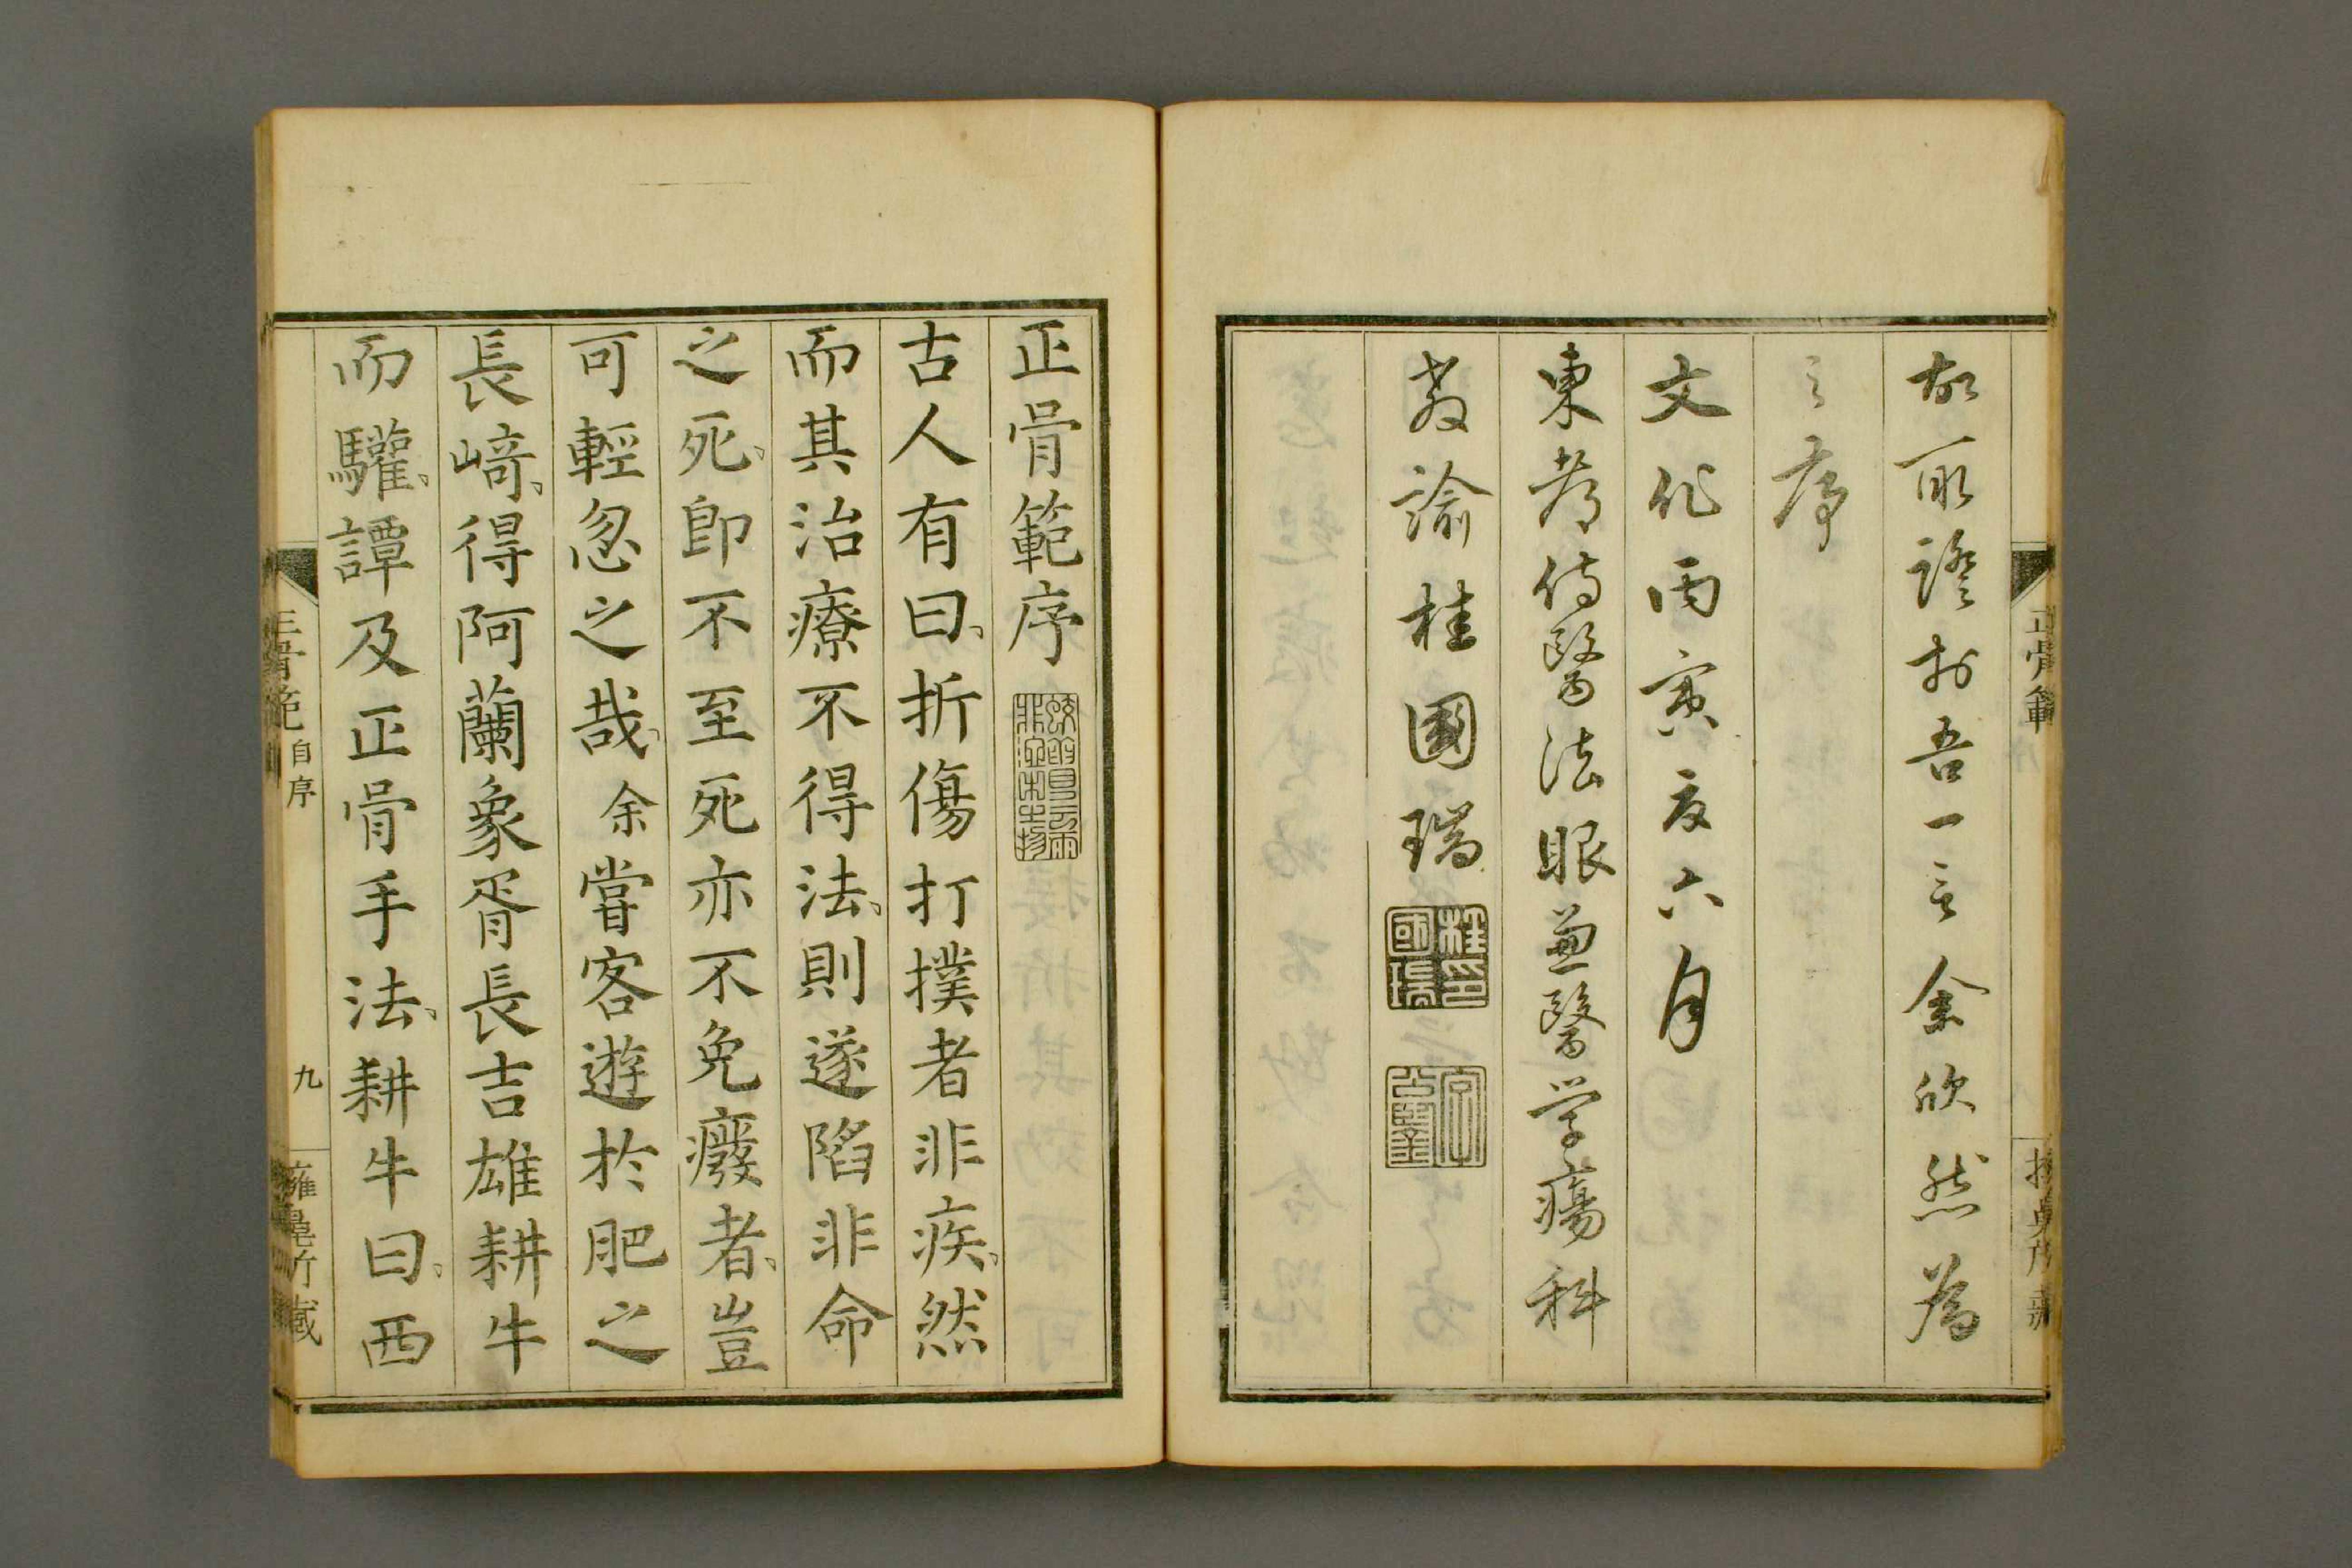 故取證於吾一言余欣然為
之序
文化丙寅夏六月
東都侍醫法眼兼醫学瘍科
教諭桂國瑞
正骨範
正骨範序
古人有曰、折傷打撲者非疾、然
而其治療不得法、則遂陷非命
之死、即不至死亦不免癈者、豈
可輕忽之哉、余嘗客遊於肥之
長﨑、得阿蘭象胥長吉雄耕牛
而驩、譚及正骨手法、耕牛曰、西
正骨範 自序 九